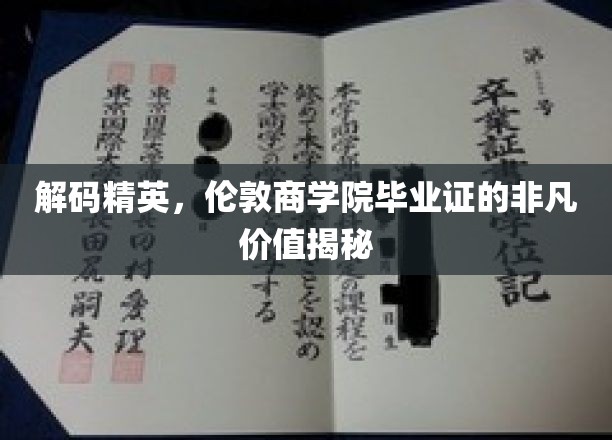 解码精英，伦敦商学院毕业证的非凡
价值揭秘
第 号
卒業証書 学位記
本学商学部 定の課程を
修めて本学 ことを認め
学士(商学)の学 する
平成
東京国際大学 田村愛理
東京国際大学長 田尻嗣夫